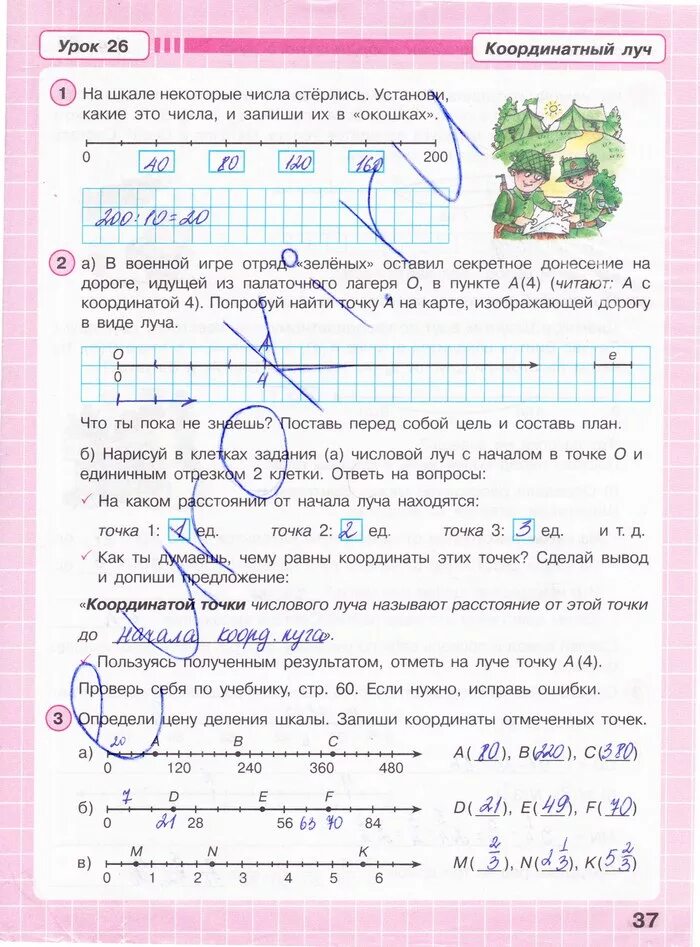 Урок 26
Координатный луч
1 На шкале некоторые числа стёрлись. Установи,
какие это числа, и запиши их в «окошках».
0 40 80 120 160 200
200:10=20
2 а) В военной игре отряд «зелёных» оставил секретное донесение на
дороге, идущей из палаточного лагеря О, в пункте А(4) (читают: А с
координатой 4). Попробуй найти точку А на карте, изображающей дорогу
в виде луча.
О А е
0 4
Что ты пока не знаешь? Поставь перед собой цель и составь план.
б) Нарисуй в клетках задания (а) числовой луч с началом в точке О и
единичным отрезком 2 клетки. Ответь на вопросы:
На каком расстоянии от начала луча находятся:
точка 1: 1 ед. точка 2: 2 ед. точка 3: 3 ед. и т. д.
Как ты думаешь, чему равны координаты этих точек? Сделай вывод
и допиши предложение:
«Координатой точки числового луча называют расстояние от этой точки
до начала коорд. луга».
Пользуясь полученным результатом, отметь на луче точку А(4).
Проверь себя по учебнику, стр. 60. Если нужно, исправь ошибки.
3 Определи цену деления шкалы. Запиши координаты отмеченных точек.
20 A B C
а) 0 120 240 360 480 A(80), B(220), C(380)
7 D E F
б) 0 21 28 56 63 70 84 D(21), E(49), F(70)
M N K
в) 0 1 2 3 4 5 6 M(2/3), N(2 1/3), K(5 2/3)
37